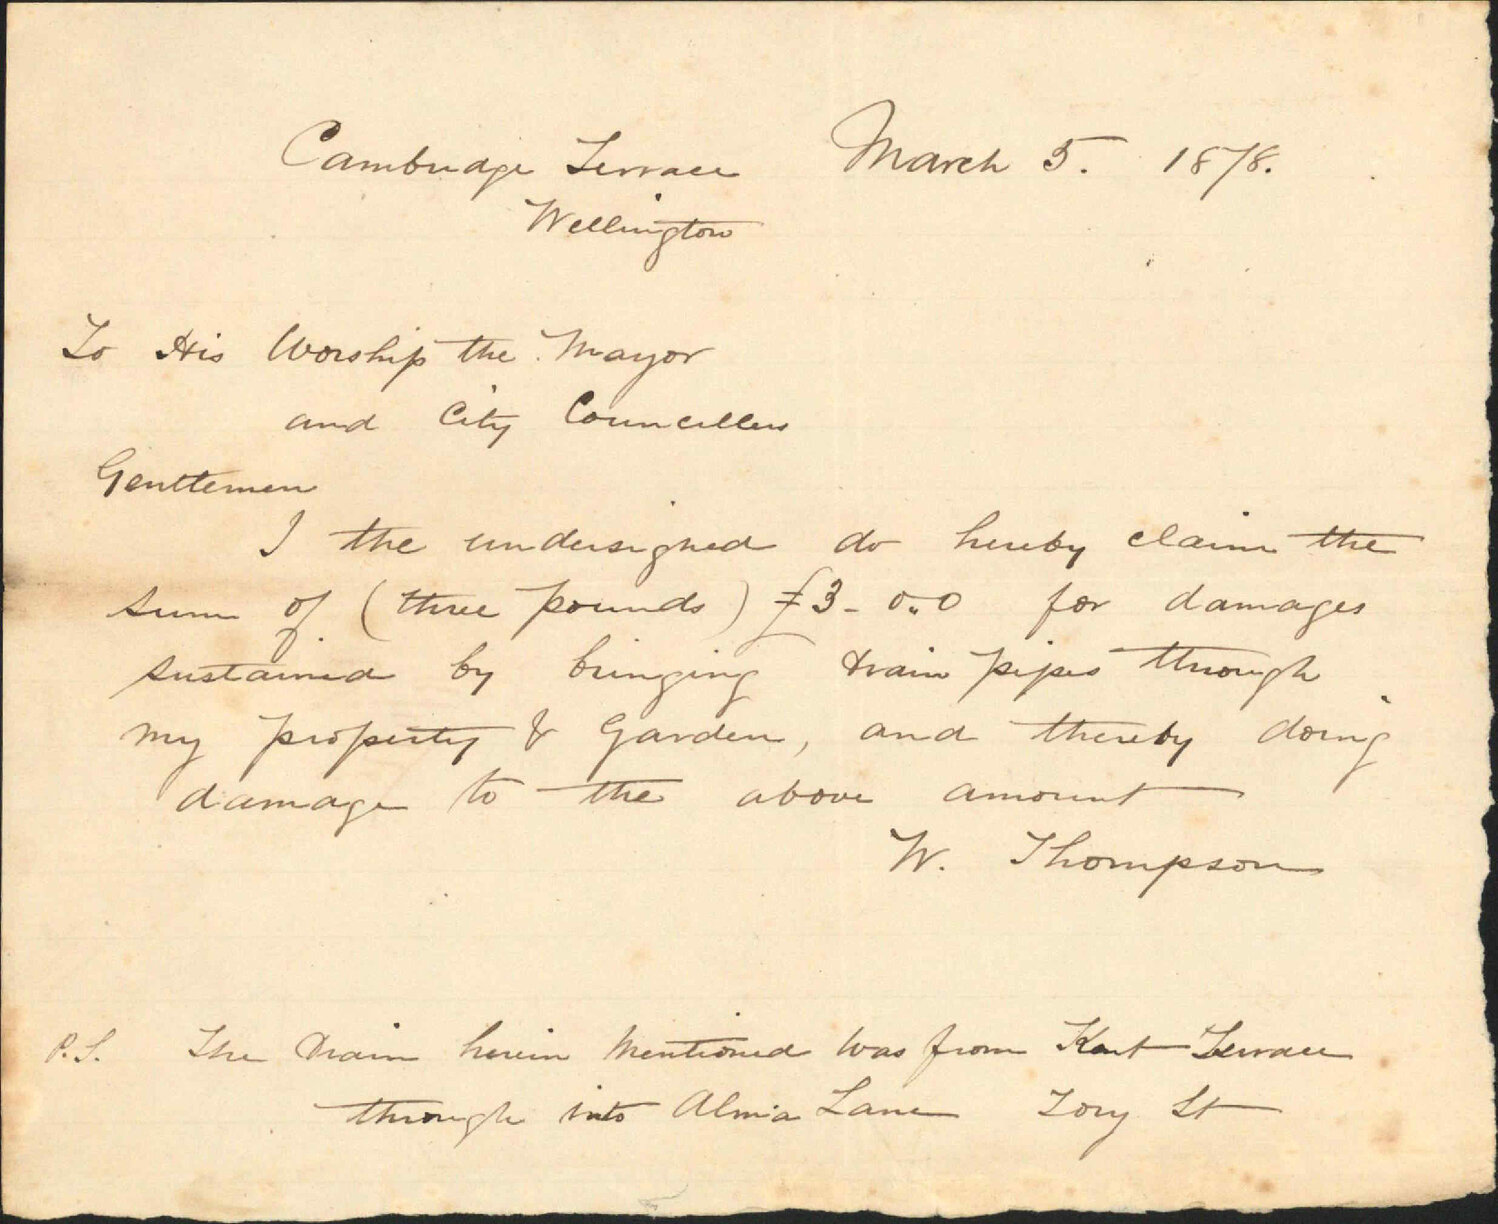 Cambridge Terrace March 5. 1878.
Wellington
To His Worship the Mayor
and City Councillers
Genttemen
I the undersigned do hereby claim the
sum of (three pounds) £3-0.0 for damages
sustained by bringing drain pipes through
my property & Garden, and thereby doing
damage to the above amount
W. Thompson
P.S. The drain herein mentioned was from Kent Terrace
through into Alma Lane Tory St